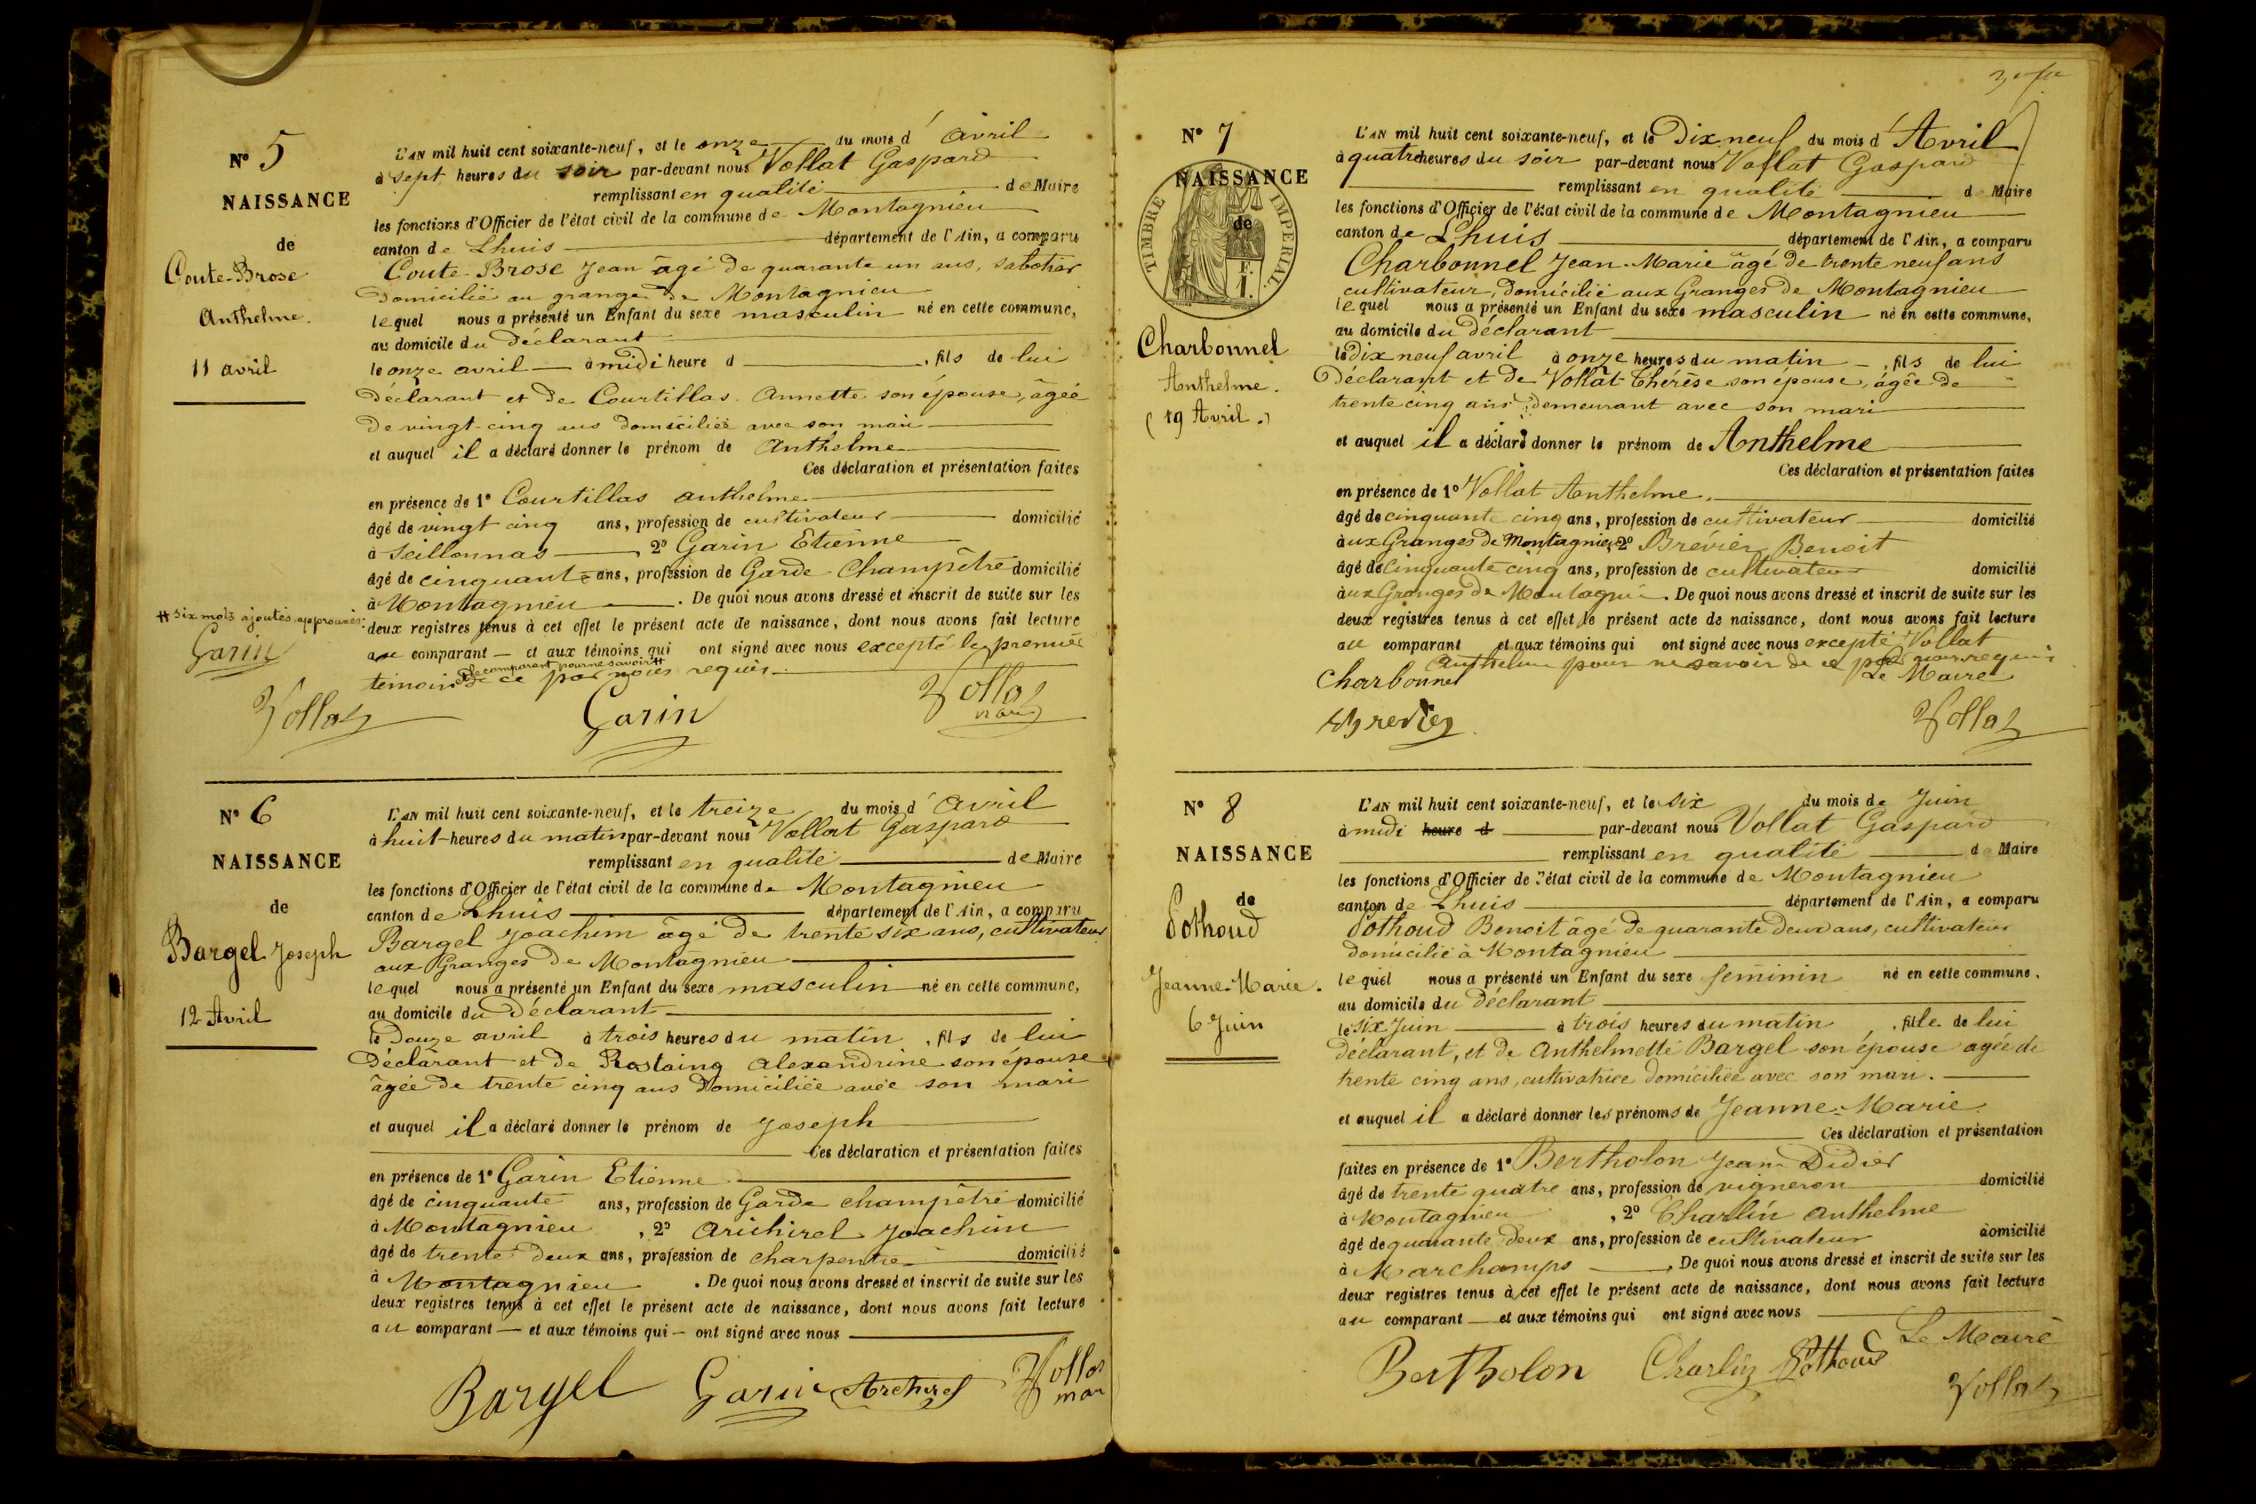 N° 5
NAISSANCE
de
Coute-Brose
Anthelme.
11 avril
L'AN mil huit cent soixante-neuf, et le onze du mois d'avril
à sept heures du soir par-devant nous Vollat Gaspard
remplissant en qualité de Maire
les fonctions d'Officier de l'état civil de la commune de Montagnieu
canton de Lhuis département de l'Ain, a comparu
Coute-Brose Jean âgé de quarante un ans, sabotier
domicilié au grange de Montagnieu
lequel nous a présenté un Enfant du sexe masculin né en cette commune,
au domicile du déclarant
le onze avril à midi heure d , fils de lui
déclarant et de Courtillas Annette son épouse, âgée
de vingt-cinq ans domiciliée avec son mari
et auquel il a déclaré donner le prénom de Anthelme
Ces déclaration et présentation faites
en présence de 1° Courtillas anthelme
âgé de vingt cinq ans, profession de cultivateur domicilié
à Seillonnas , 2° Garin Etienne
âgé de cinquante ans, profession de Garde Champêtre domicilié
à Montagnieu . De quoi nous avons dressé et inscrit de suite sur les
# six mots ajoutés approuvés
Garin
deux registres tenus à cet effet le présent acte de naissance, dont nous avons fait lecture
au comparant et aux témoins qui ont signé avec nous excepté le premier
le comparant pour ne savoir #
témoin de ce par nous requis
Vollat Garin Vollat
maire
N° 6
NAISSANCE
de
Bargel Joseph
12 Avril
L'AN mil huit cent soixante-neuf, et le treize du mois d'avril
à huit heures du matin par-devant nous Vollat Gaspard
remplissant en qualité de Maire
les fonctions d'Officier de l'état civil de la commune de Montagnieu
canton de Lhuis département de l'Ain, a comparu
Bargel Joachim âgé de trente six ans, cultivateur
aux Granges de Montagnieu
lequel nous a présenté un Enfant du sexe masculin né en cette commune,
au domicile du Déclarant
le Douze avril à trois heures du matin , fils de lui
Déclarant et de Rostaing Alexandrine son épouse
âgée de trente cinq ans Domiciliée avec son mari
et auquel il a déclaré donner le prénom de Joseph
Ces déclaration et présentation faites
en présence de 1° Garin Etienne
âgé de cinquante ans, profession de Garde champêtre domicilié
à Montagnieu , 2° Joachim
âgé de trente deux ans, profession de charpentier domicilié
à Montagnieu . De quoi nous avons dressé et inscrit de suite sur les
deux registres tenus à cet effet le présent acte de naissance, dont nous avons fait lecture
au comparant et aux témoins qui ont signé avec nous
Bargel Garin Vollat
N° 7
NAISSANCE
de
TIMBRE IMPERIAL
Charbonnel
Anthelme.
(19 Avril.)
L'AN mil huit cent soixante-neuf, et le Dix neuf du mois d'Avril
à quatre heures du soir par-devant nous Vollat Gaspard
remplissant en qualité de Maire
les fonctions d'Officier de l'état civil de la commune de Montagnieu
canton de Lhuis département de l'Ain, a comparu
Charbonnel Jean-Marie âgé de trente neuf ans
cultivateur, domicilié aux Granges de Montagnieu
lequel nous a présenté un Enfant du sexe masculin né en cette commune,
au domicile du déclarant
le dix neuf avril à onze heures du matin , fils de lui
Déclarant et de Vollat Thérèse son épouse, âgée de
trente cinq ans demeurant avec son mari
et auquel il a déclaré donner le prénom de Anthelme
Ces déclaration et présentation faites
en présence de 1° Vollat Anthelme.
âgé de cinquante cinq ans, profession de cultivateur domicilié
à ux Granges de Montagnieu, 2° Brévier Benoit
âgé de cinquante cinq ans, profession de cultivateur domicilié
à ux Granges de Montagnieu. De quoi nous avons dressé et inscrit de suite sur les
deux registres tenus à cet effet le présent acte de naissance, dont nous avons fait lecture
au comparant et aux témoins qui ont signé avec nous excepté Vollat
Anthelme pour ne savoir de ce par nous requis
Charbonnel Le Maire
Brevier Vollat
N° 8
NAISSANCE
de
Pothoud
Jeanne-Marie.
6 Juin
L'AN mil huit cent soixante-neuf, et le six du mois de Juin
à midi heure d par-devant nous Vollat Gaspard
remplissant en qualité de Maire
les fonctions d'Officier de l'état civil de la commune de Montagnieu
canton de Lhuis département de l'Ain, a comparu
Pothoud Benoit âgé de quarante deux ans, cultivateur
domicilié à Montagnieu
lequel nous a présenté un Enfant du sexe féminin né en cette commune,
au domicile du Déclarant
le six Juin à trois heures du matin , fille de lui
déclarant, et de Anthelmette Bargel son épouse agée de
trente cinq ans, cultivatrice domiciliée avec son mari.
et auquel il a déclaré donner les prénoms de Jeanne-Marie
Ces déclaration et présentation
faites en présence de 1° Bertholon Jean Didier
âgé de trente quatre ans, profession de vigneron domicilié
à Montagnieu , 2° Charlin Anthelme
âgé de quarante deux ans, profession de cultivateur domicilié
à Marchamps . De quoi nous avons dressé et inscrit de suite sur les
deux registres tenus à cet effet le présent acte de naissance, dont nous avons fait lecture
au comparant et aux témoins qui ont signé avec nous
Le Maire
Bertholon Charlin Pothoud
Vollat